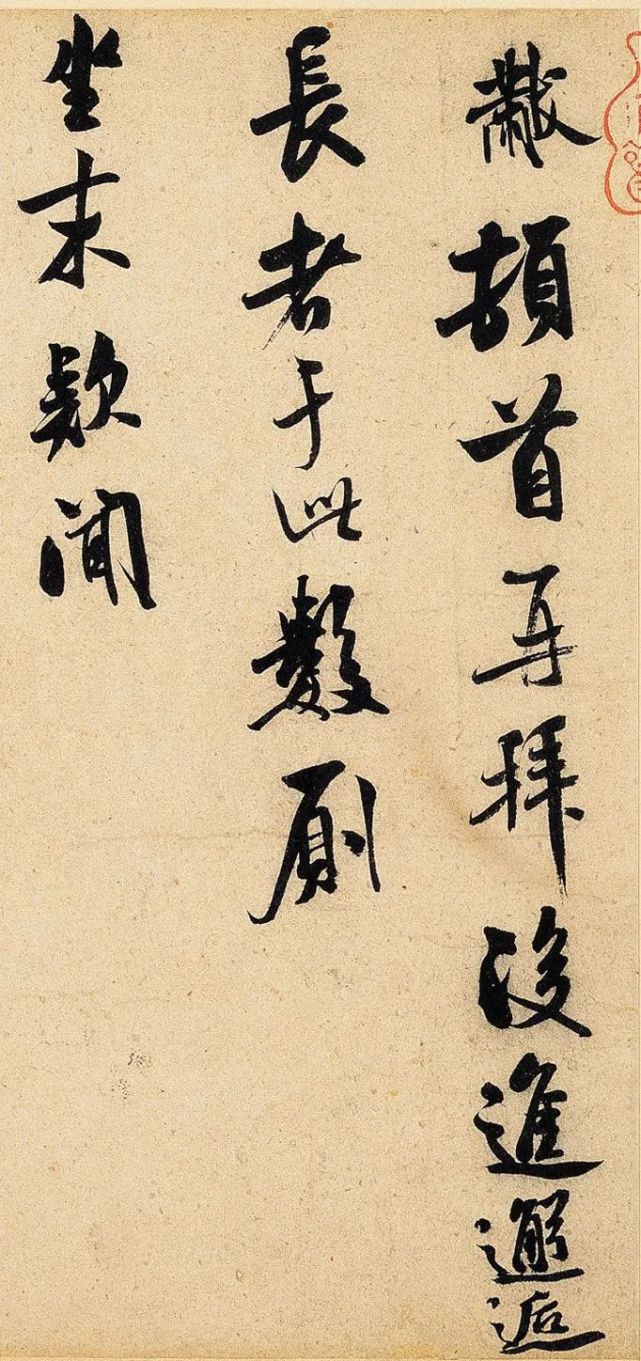 黻頓首再拜後進邂逅
長者于此數廁
坐末款聞